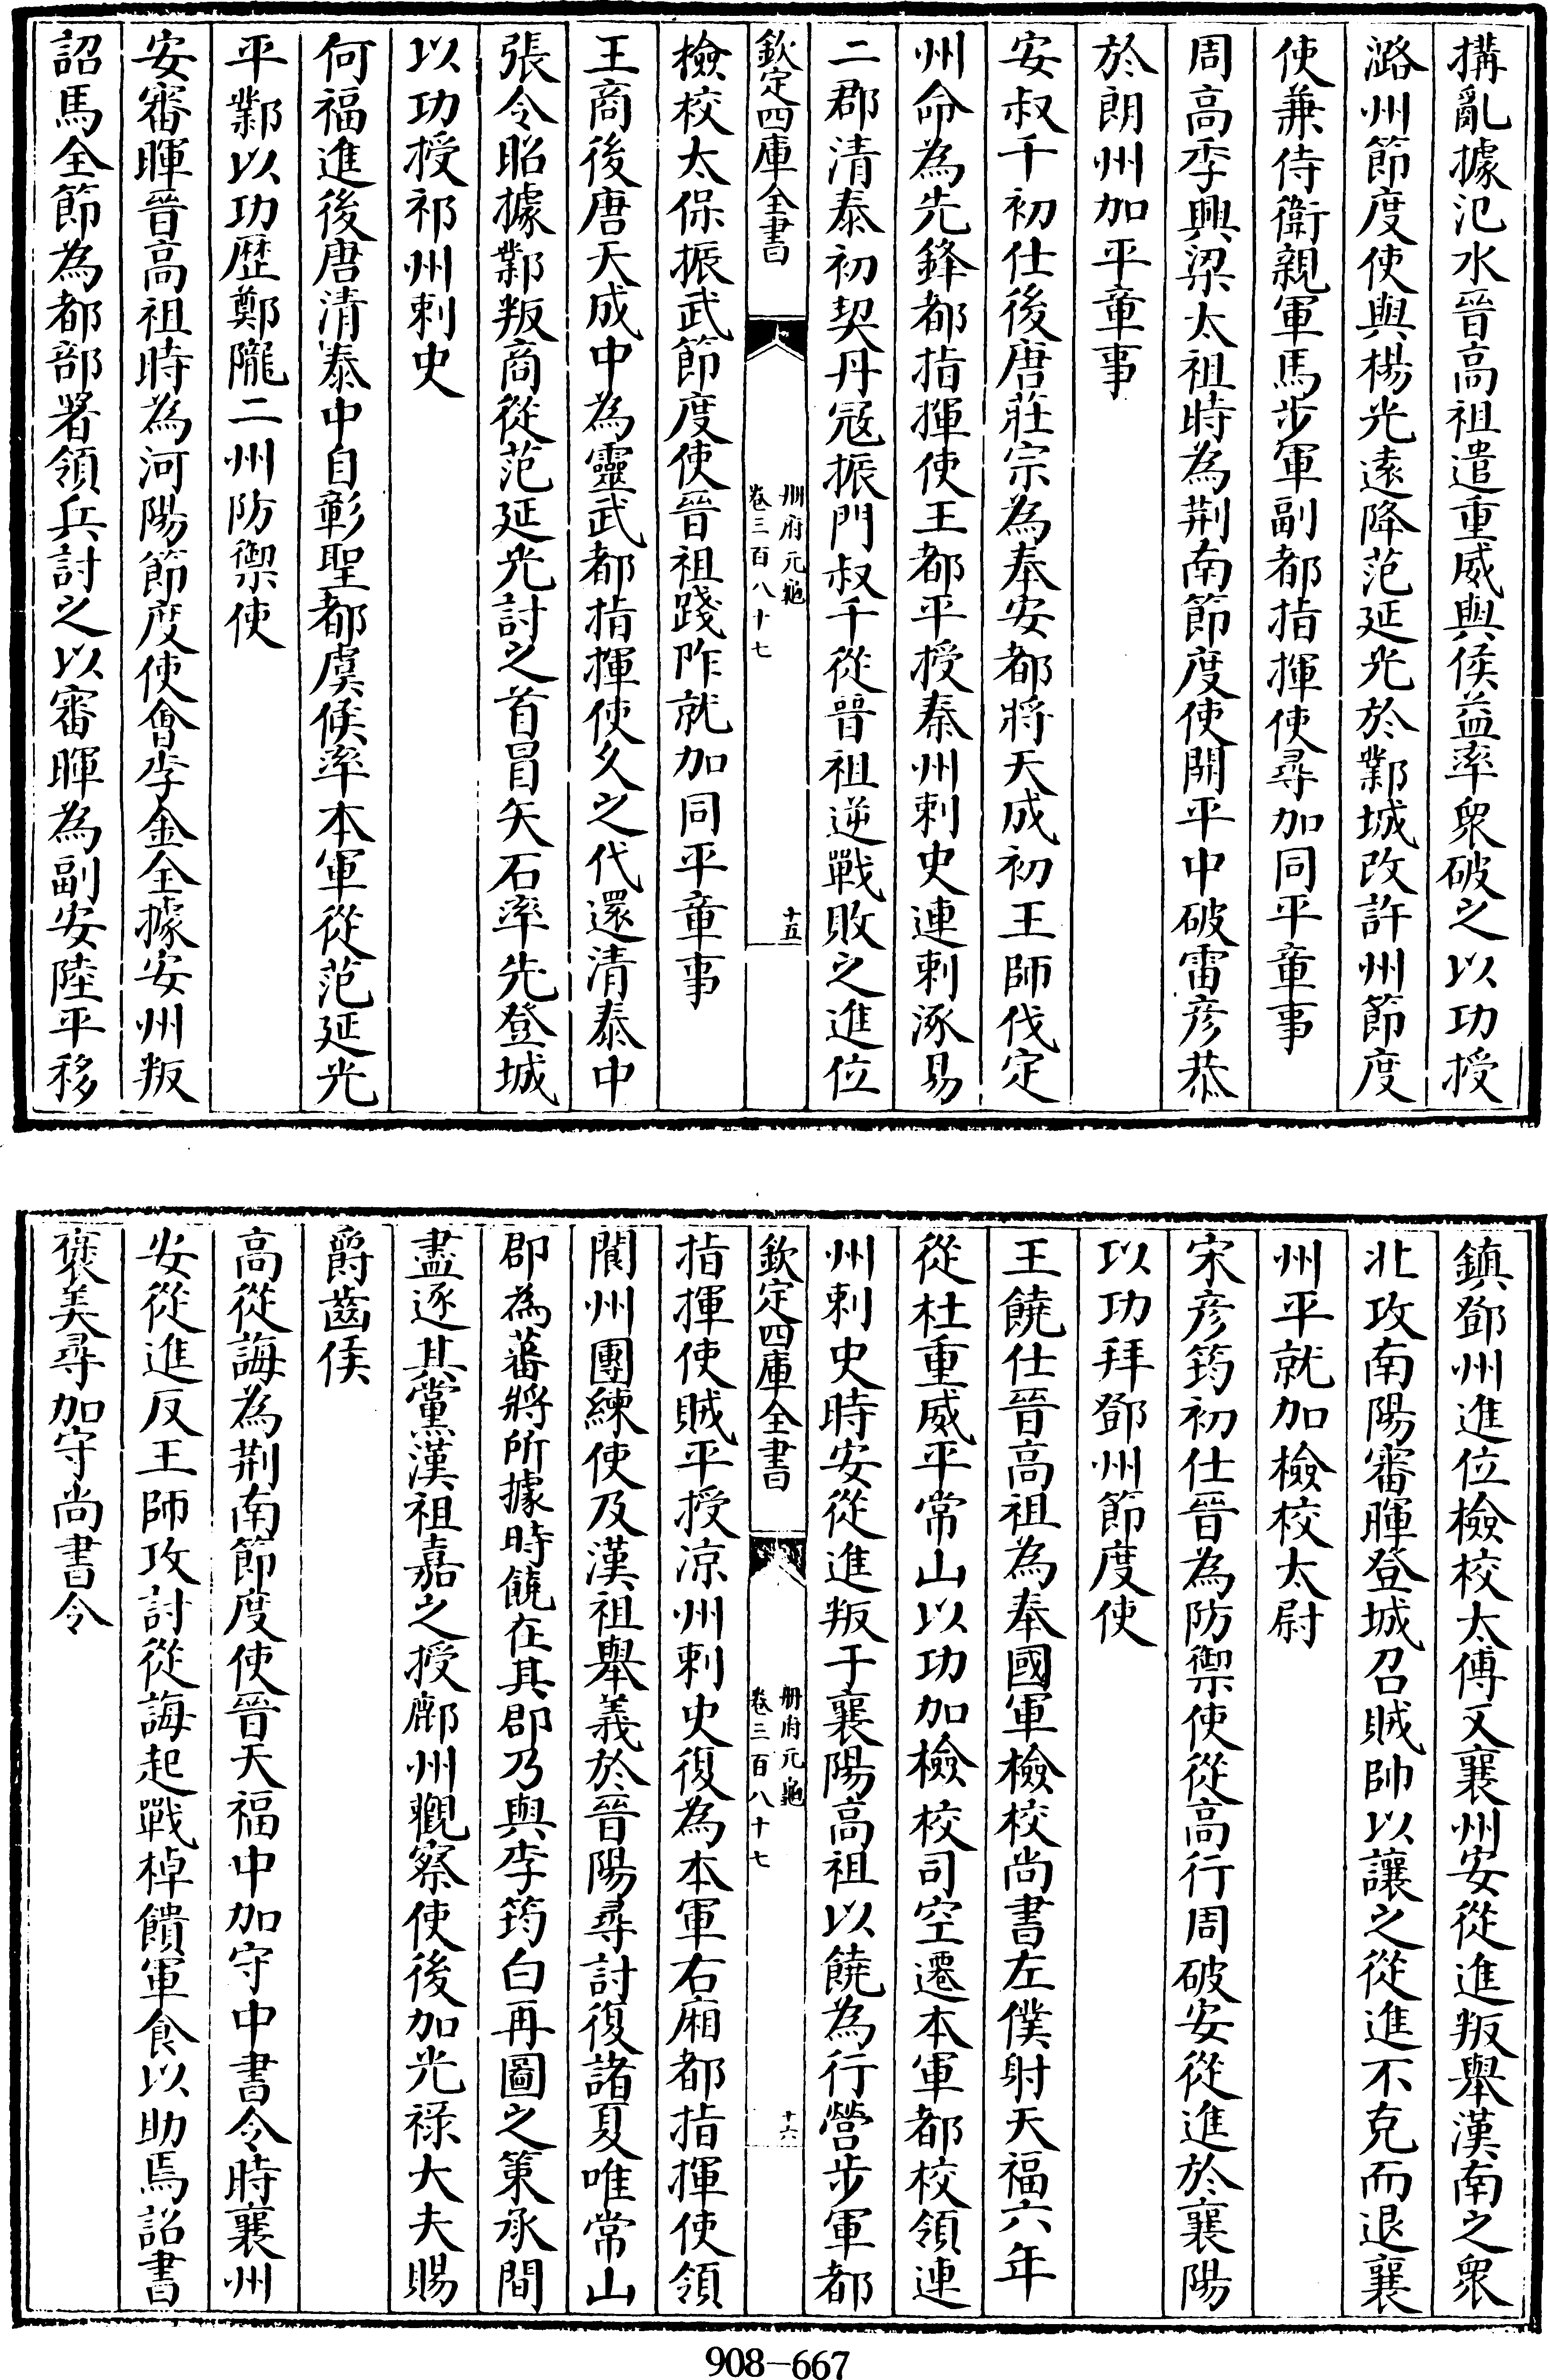 搆亂據氾水晉高祖遣重威與侯益率衆破之以功授
潞州節度使與楊光遠降范延光於鄴城改許州節度
使兼侍衛親軍馬步軍副都指揮使尋加同平章事
周高季興梁太祖時為荆南節度使開平中破雷彦恭
於朗州加平章事
安叔千初仕後唐莊宗為奉安都將天成初王師伐定
州命為先鋒都指揮使王都平授秦州刺史連刺涿易
二郡清泰初契丹冦振門叔千從晉祖逆戰敗之進位
欽定四庫全書
册府元龜
卷三百八十七
十五
檢校太保振武節度使晉祖踐阼就加同平章事
王商後唐天成中為靈武都指揮使久之代還清泰中
張令昭據鄴叛商從范延光討之首冒矢石率先登城
以功授祁州刺史
何福進後唐清泰中自彰聖都虞候率本軍從范延光
平鄴以功歷鄭隴二州防禦使
安審暉晉高祖時為河陽節度使會李金全據安州叛
詔馬全節為都部署領兵討之以審暉為副安陸平移
鎮鄧州進位檢校太傅又襄州安從進叛舉漢南之衆
北攻南陽審暉登城召賊帥以讓之從進不克而退襄
州平就加檢校太尉
宋彦筠初仕晉為防禦使從高行周破安從進於襄陽
以功拜鄧州節度使
王饒仕晉高祖為奉國軍檢校尚書左僕射天福六年
從杜重威平常山以功加檢校司空遷本軍都校領連
州刺史時安從進叛于襄陽高祖以饒為行營步軍都
欽定四庫全書
册府元龜
卷三百八十七
十六
指揮使賊平授凉州刺史復為本軍右廂都指揮使領
閬州團練使及漢祖舉義於晉陽尋討復諸夏唯常山
郡為蕃將所據時饒在其郡乃與李筠白再圖之策承間
盡逐其黨漢祖嘉之授鄜州觀察使後加光禄大夫賜
爵齒侯
高從誨為荆南節度使晉天福中加守中書令時襄州
安從進反王師攻討從誨起戰棹饋軍食以助焉詔書
襃美尋加守尚書令
908-667